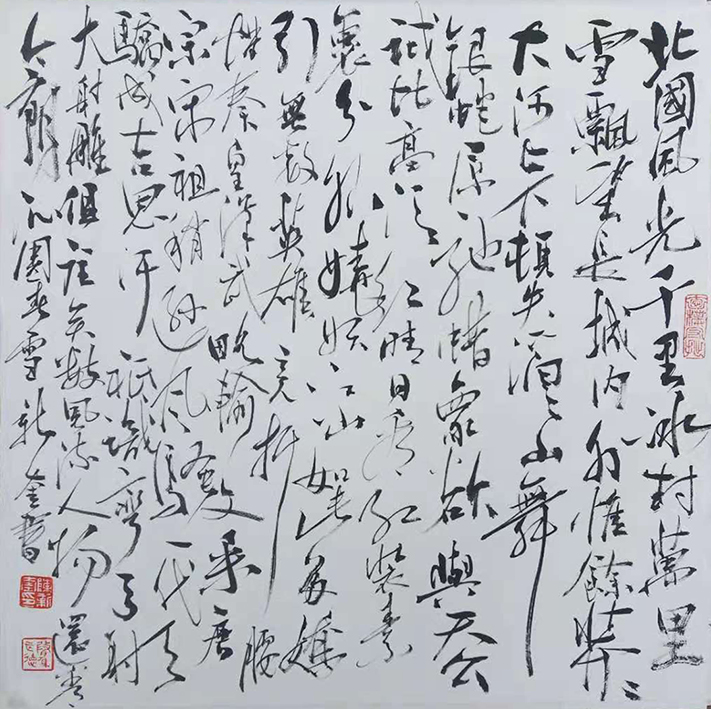 北國風光千里冰封萬里
雪飄望長城內外惟餘莽〻
大河上下頓失滔〻山舞
銀蛇原馳蜡象欲與天公
試比高須晴日看紅裝素
裹分外嬈妖江山如此多嬌
引無數英雄竞折腰
惜秦皇漢武略輸文采唐
宗宋祖稍遜風騷一代天
驕成吉思汗祇識彎弓射
大射雕俱往矣數風流人物還看
今朝 沁園春雪 新奎書